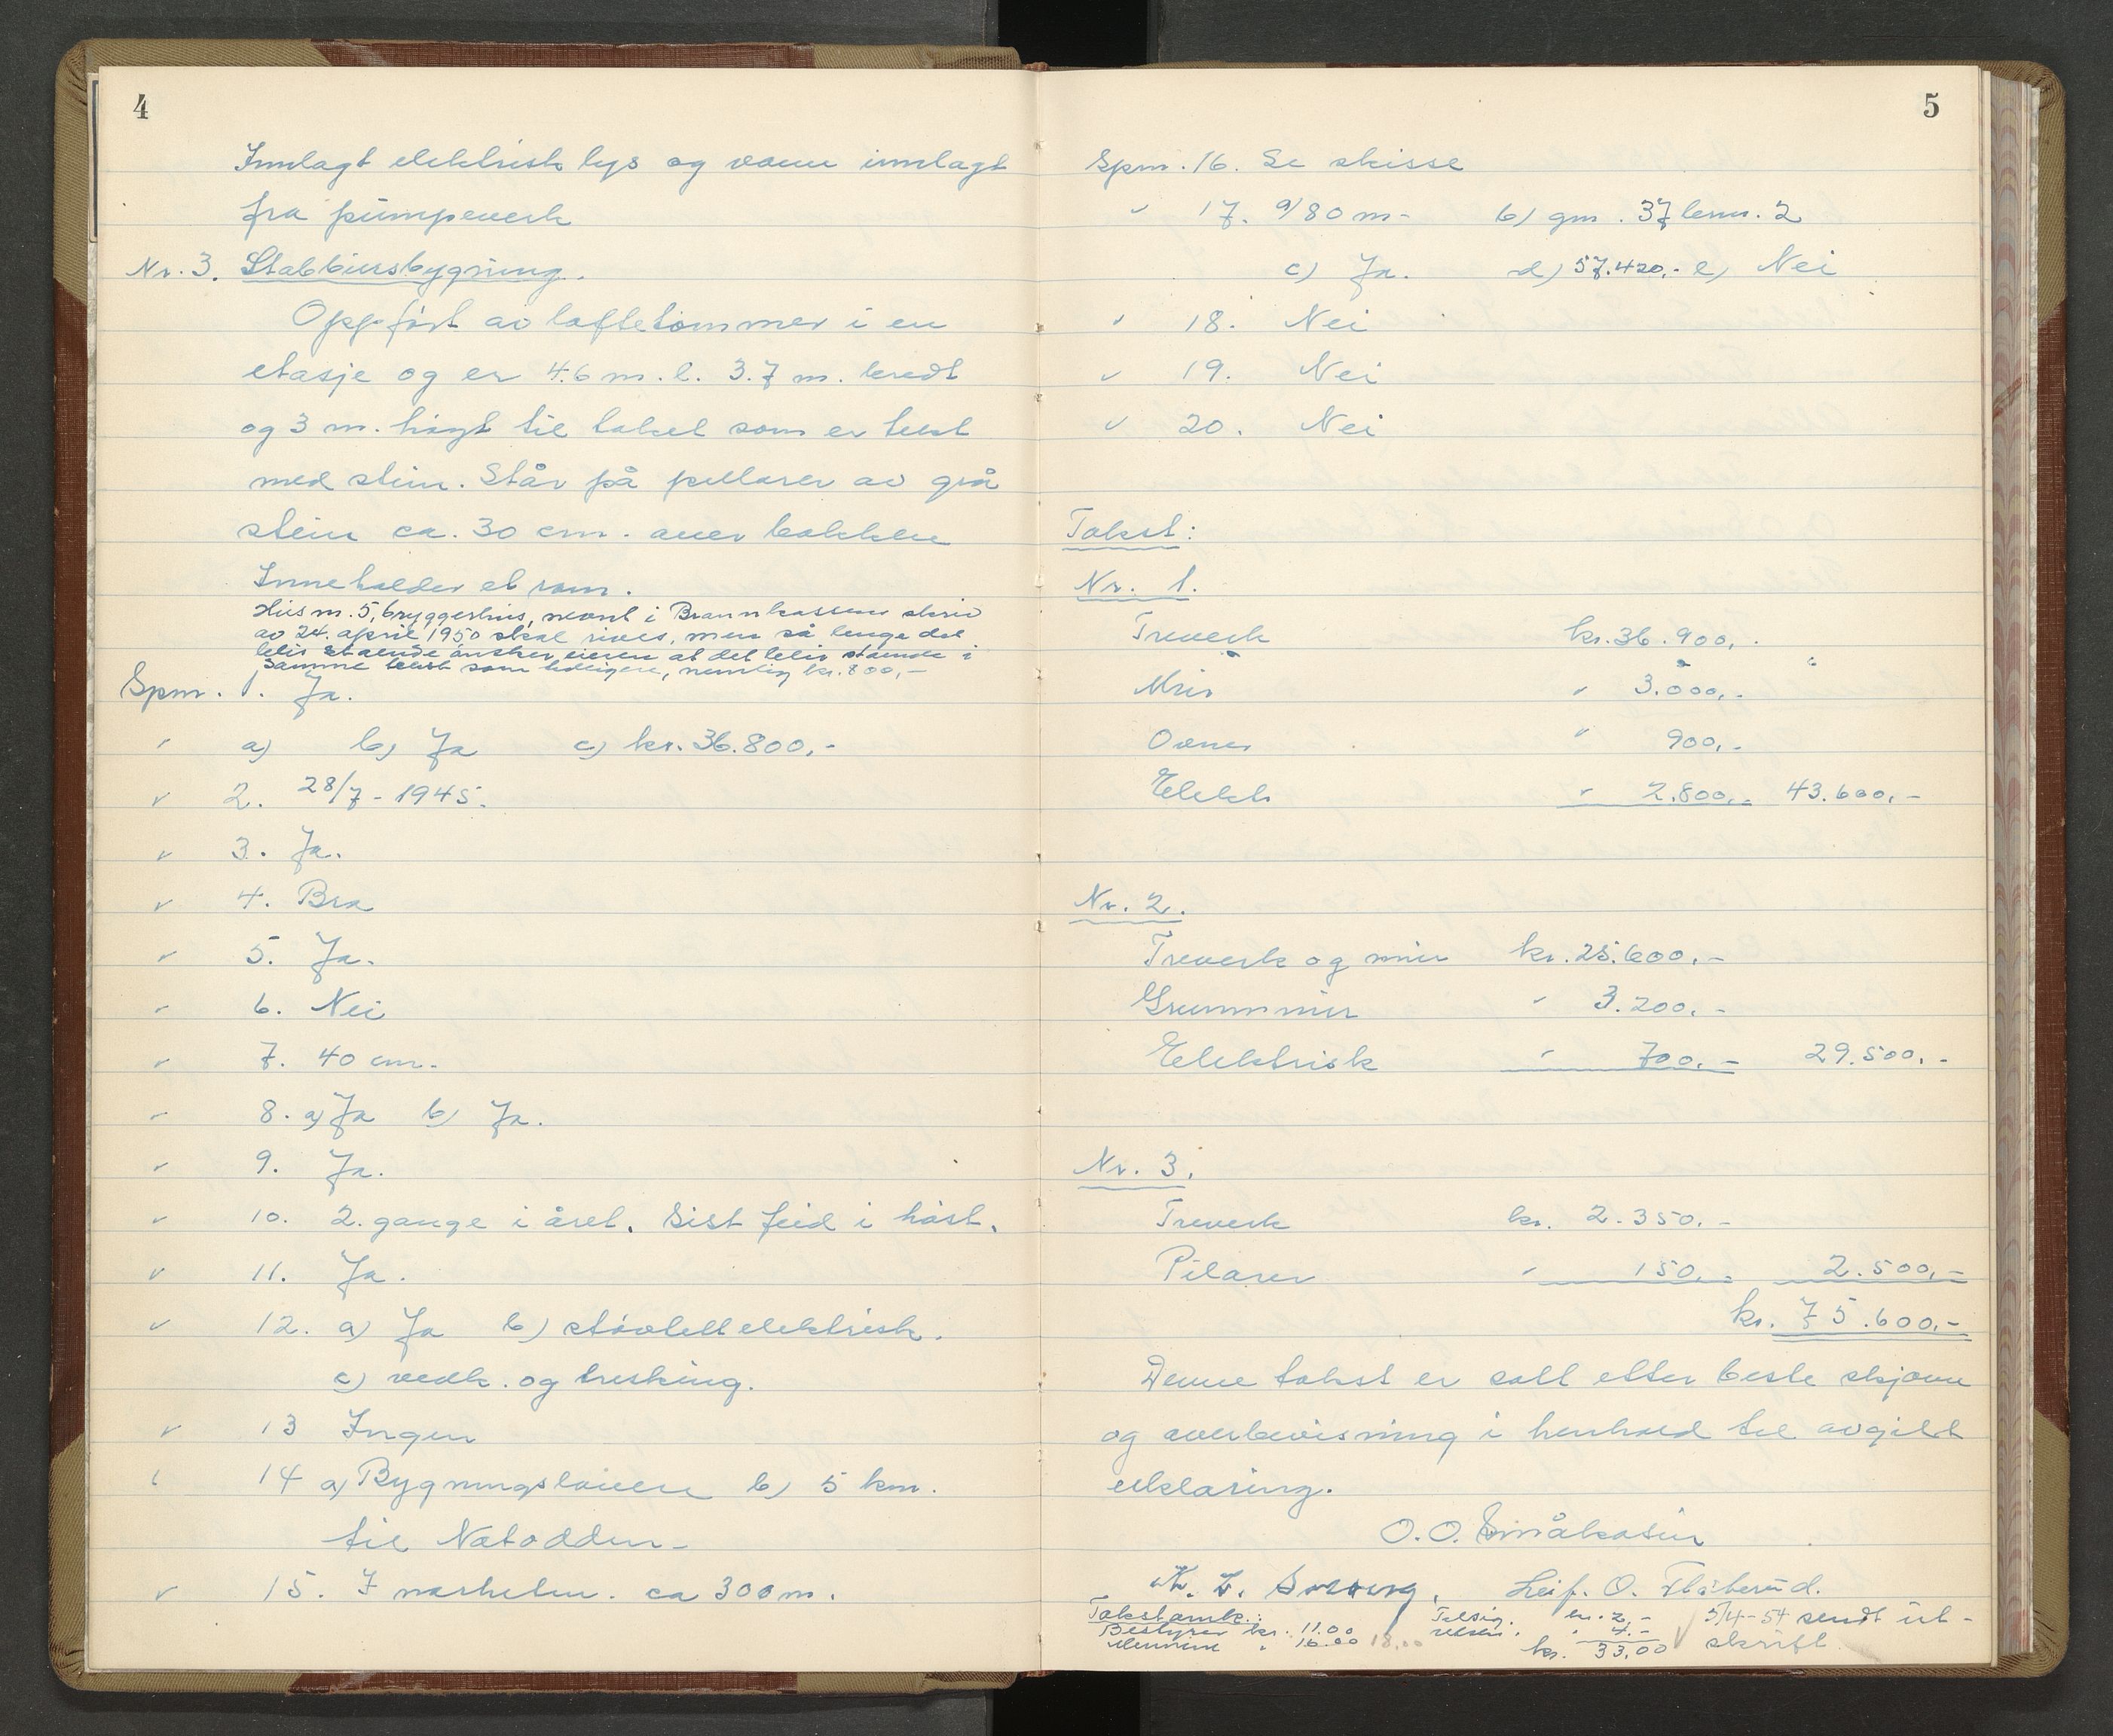 4
Innlagt elektrisk lys og vann innlagt
fra pumpeverk
Nr. 3. Stabbursbygning.
Oppført av laftetømmer i en
etasje og er 4.6 m. l. 3.7 m. bredt
og 3 m. høyt til taket som er tekt
med stein. Står på pillarer av grå
stein ca. 30 cm. over bakken
Inneholder et rom.
Hus nr. 5, bryggerhus, nevnt i Brannkassens skriv
av 24. april 1950 skal rives, men så lenge det
blir stående ønsker eieren at det blir stående i
samme takst som tidligere, nemlig kr. 800,-
Spm. 1. Ja.
" a) b) Ja c) kr. 36.800,-
" 2. 28/7 - 1945.
" 3. Ja.
" 4. Bra
" 5. Ja.
" 6. Nei
" 7. 40 cm.
" 8. a) Ja b) Ja.
" 9. Ja.
" 10. 2. gange i året. Sist feid i høst.
" 11. Ja.
" 12. a) Ja b) støvtett elektrisk.
c) vedk. og tresking.
" 13 Ingen
" 14 a) Bygningsloven b) 5 km.
til Notodden-
" 15. I nærheten. ca 300 m.
5
Spm. 16. Se skisse
" 17. a) 80 m- b) gnr. 37 bnr. 2
c) Ja. d) 57.420.- e) Nei
" 18. Nei
" 19. Nei
" 20. Nei
Takst:
Nr. 1.
Treverk kr. 36.900,-
Mur " 3.000,-
Ovner " 900,-
Elektr " 2.800,- 43.600,-
Nr. 2.
Treverk og mur kr. 25.600,-
Grunnmur " 3.200,-
Elektrisk " 700,- 29.500,-
Nr. 3.
Treverk kr. 2.350,-
Pilarer " 150,- 2.500,-
kr. 75.600,-
Denne takst er satt etter beste skjønn
og overbevisning i henhold til avgitt
erklæring.
O. O. Småkasin
Leif. O. Flåterud.
Takstomk.:
Bestyrer kr. 11.00 kr. 2,- 5/4-54 sendt ut-
Mennene " 16.00 18.00 " 4.- skrift.
kr. 33,00